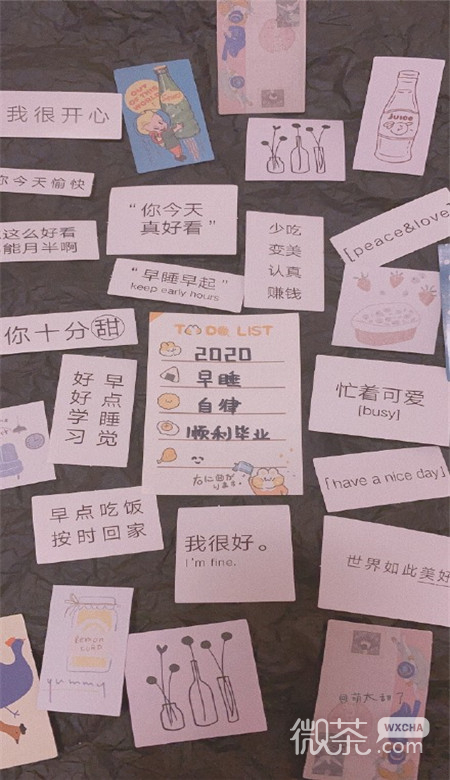 我很开心
OUT OF THIS WORLD
Juice
你今天愉快
“你今天
真好看”
少吃
变美
认真
赚钱
[peace&love]
这么好看
能月半啊
“早睡早起”
keep early hours
你十分甜
TO DO LIST
2020
早睡
自律
顺利毕业
早点睡觉
好好学习
忙着可爱
[busy]
[have a nice day]
早点吃饭
按时回家
我很好。
I'm fine.
世界如此美好
lemon
curd
yummy
微茶
WXCHA
.com